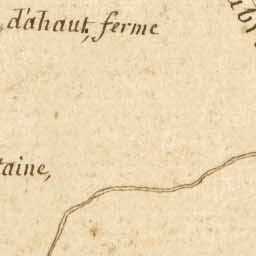 d'ahaut, ferme
taine,